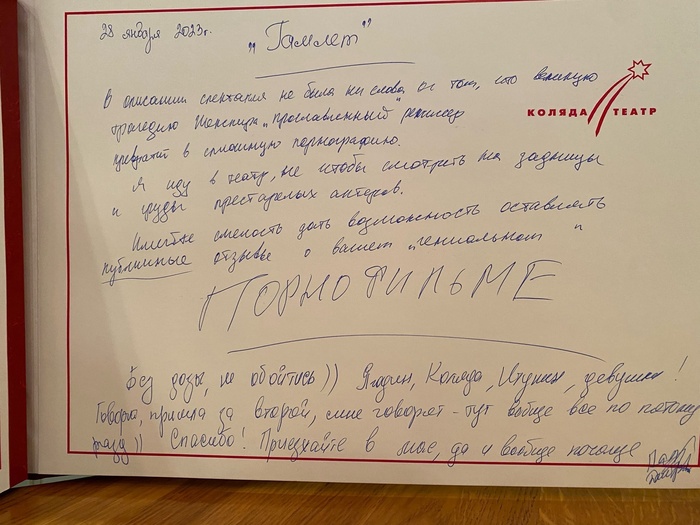 28 января 2023г.
"Гамлет"
В описании спектакля не было ни слова о том, что великую
трагедию Шекспира "прославленный" режиссер
превратит в сплошную порнографию.
КОЛЯДА ТЕАТР
Я иду в театр, не чтобы смотреть на задницы
и груди престарелых актеров.
Имейте смелость дать возможность оставлять
публичные отзывы о вашем "гениальном"
ПОРНОФИЛЬМЕ
Без дозы, не обойтись)) Ягодин, Коляда, Итунин, девушки!
Говорю, пришла за второй, мне говорят - тут вообще все по
разу)) Спасибо! Приезжайте в мае, да и вообще почаще